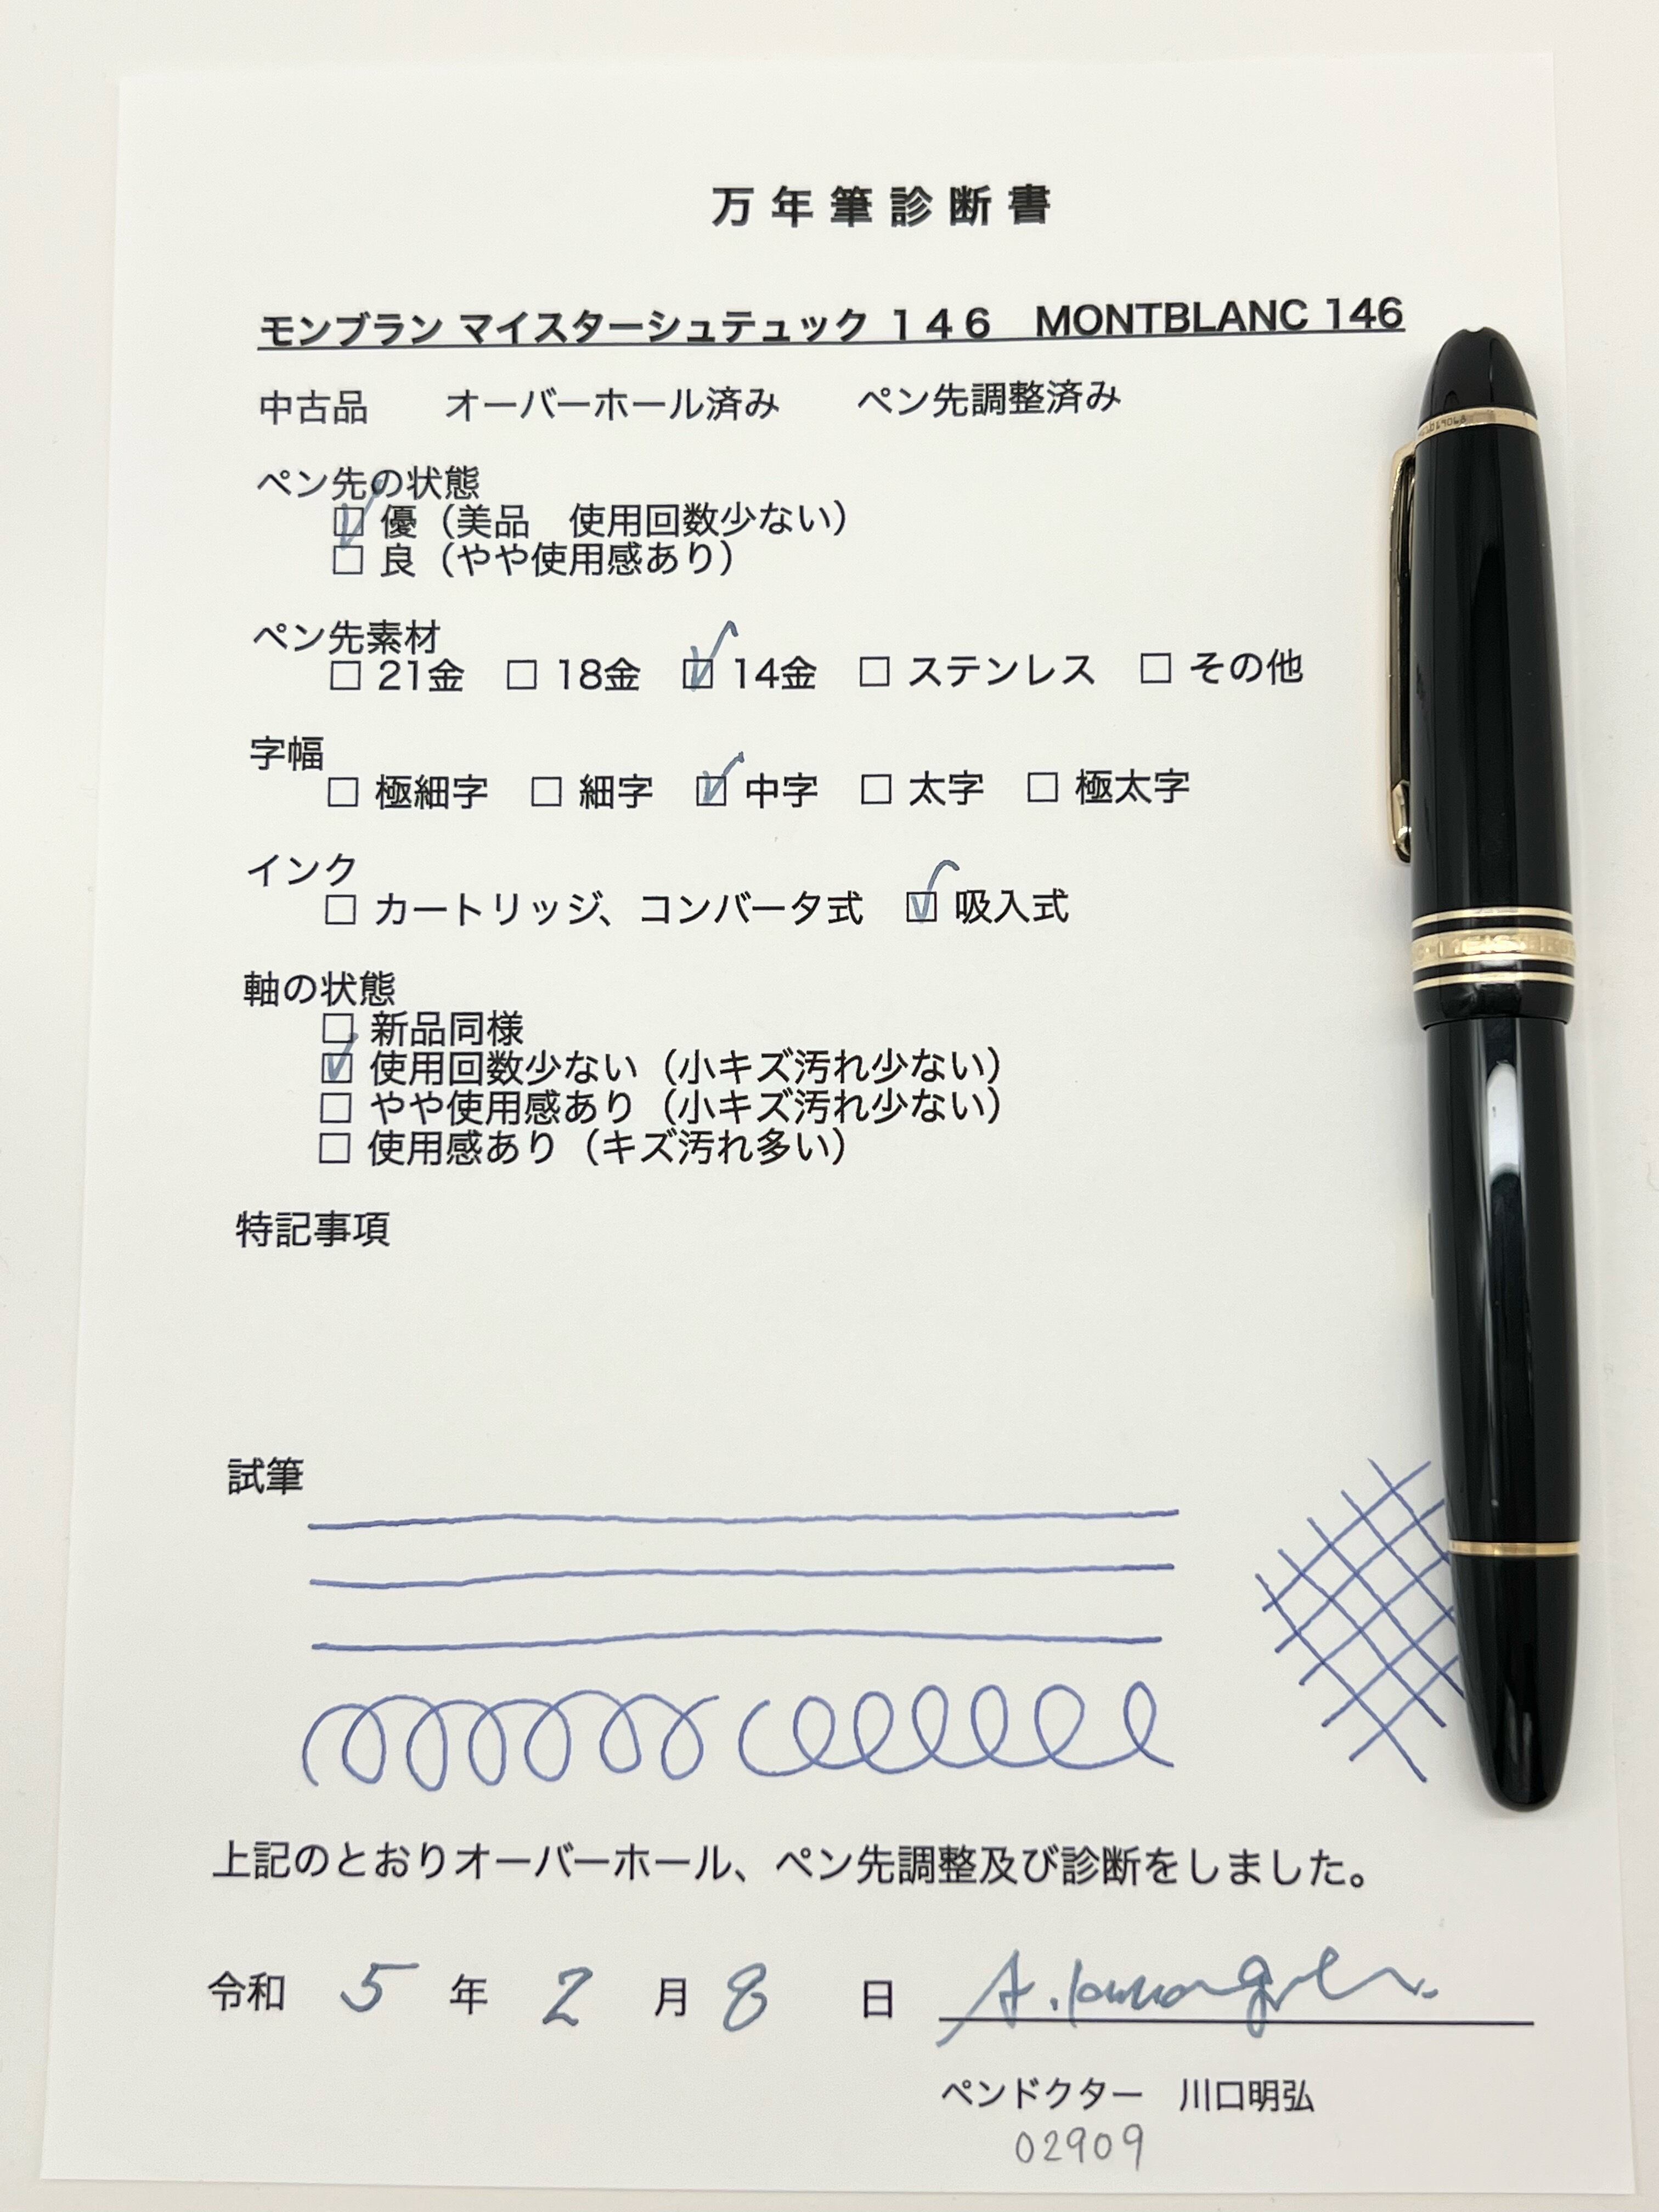 万年筆診断書
モンブラン マイスターシュテュック 146　MONTBLANC 146
中古品　オーバーホール済み　ペン先調整済み
ペン先の状態
☑ 優（美品　使用回数少ない）
☐ 良（やや使用感あり）
ペン先素材
☐ 21金 ☐ 18金 ☑ 14金 ☐ ステンレス ☐ その他
字幅
☐ 極細字 ☐ 細字 ☑ 中字 ☐ 太字 ☐ 極太字
インク
☐ カートリッジ、コンバータ式 ☑ 吸入式
軸の状態
☐ 新品同様
☑ 使用回数少ない（小キズ汚れ少ない）
☐ やや使用感あり（小キズ汚れ少ない）
☐ 使用感あり（キズ汚れ多い）
特記事項
試筆
上記のとおりオーバーホール、ペン先調整及び診断をしました。
令和 5 年 2 月 8 日
ペンドクター　川口明弘
02909